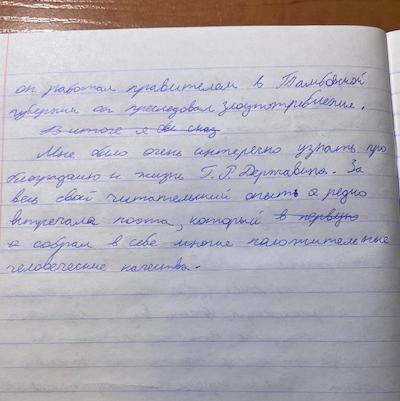 он работал правителем в Тамбовской
губернии он преследовал злоупотребление.
В итоге я сказ
Мне было очень интересно узнать про
биографию и жизнь Г. Р. Державина. За
весь свой читательский опыт я редко
встречала поэта, который в первую
а собрал в себе многие положительные
человеческие качества.